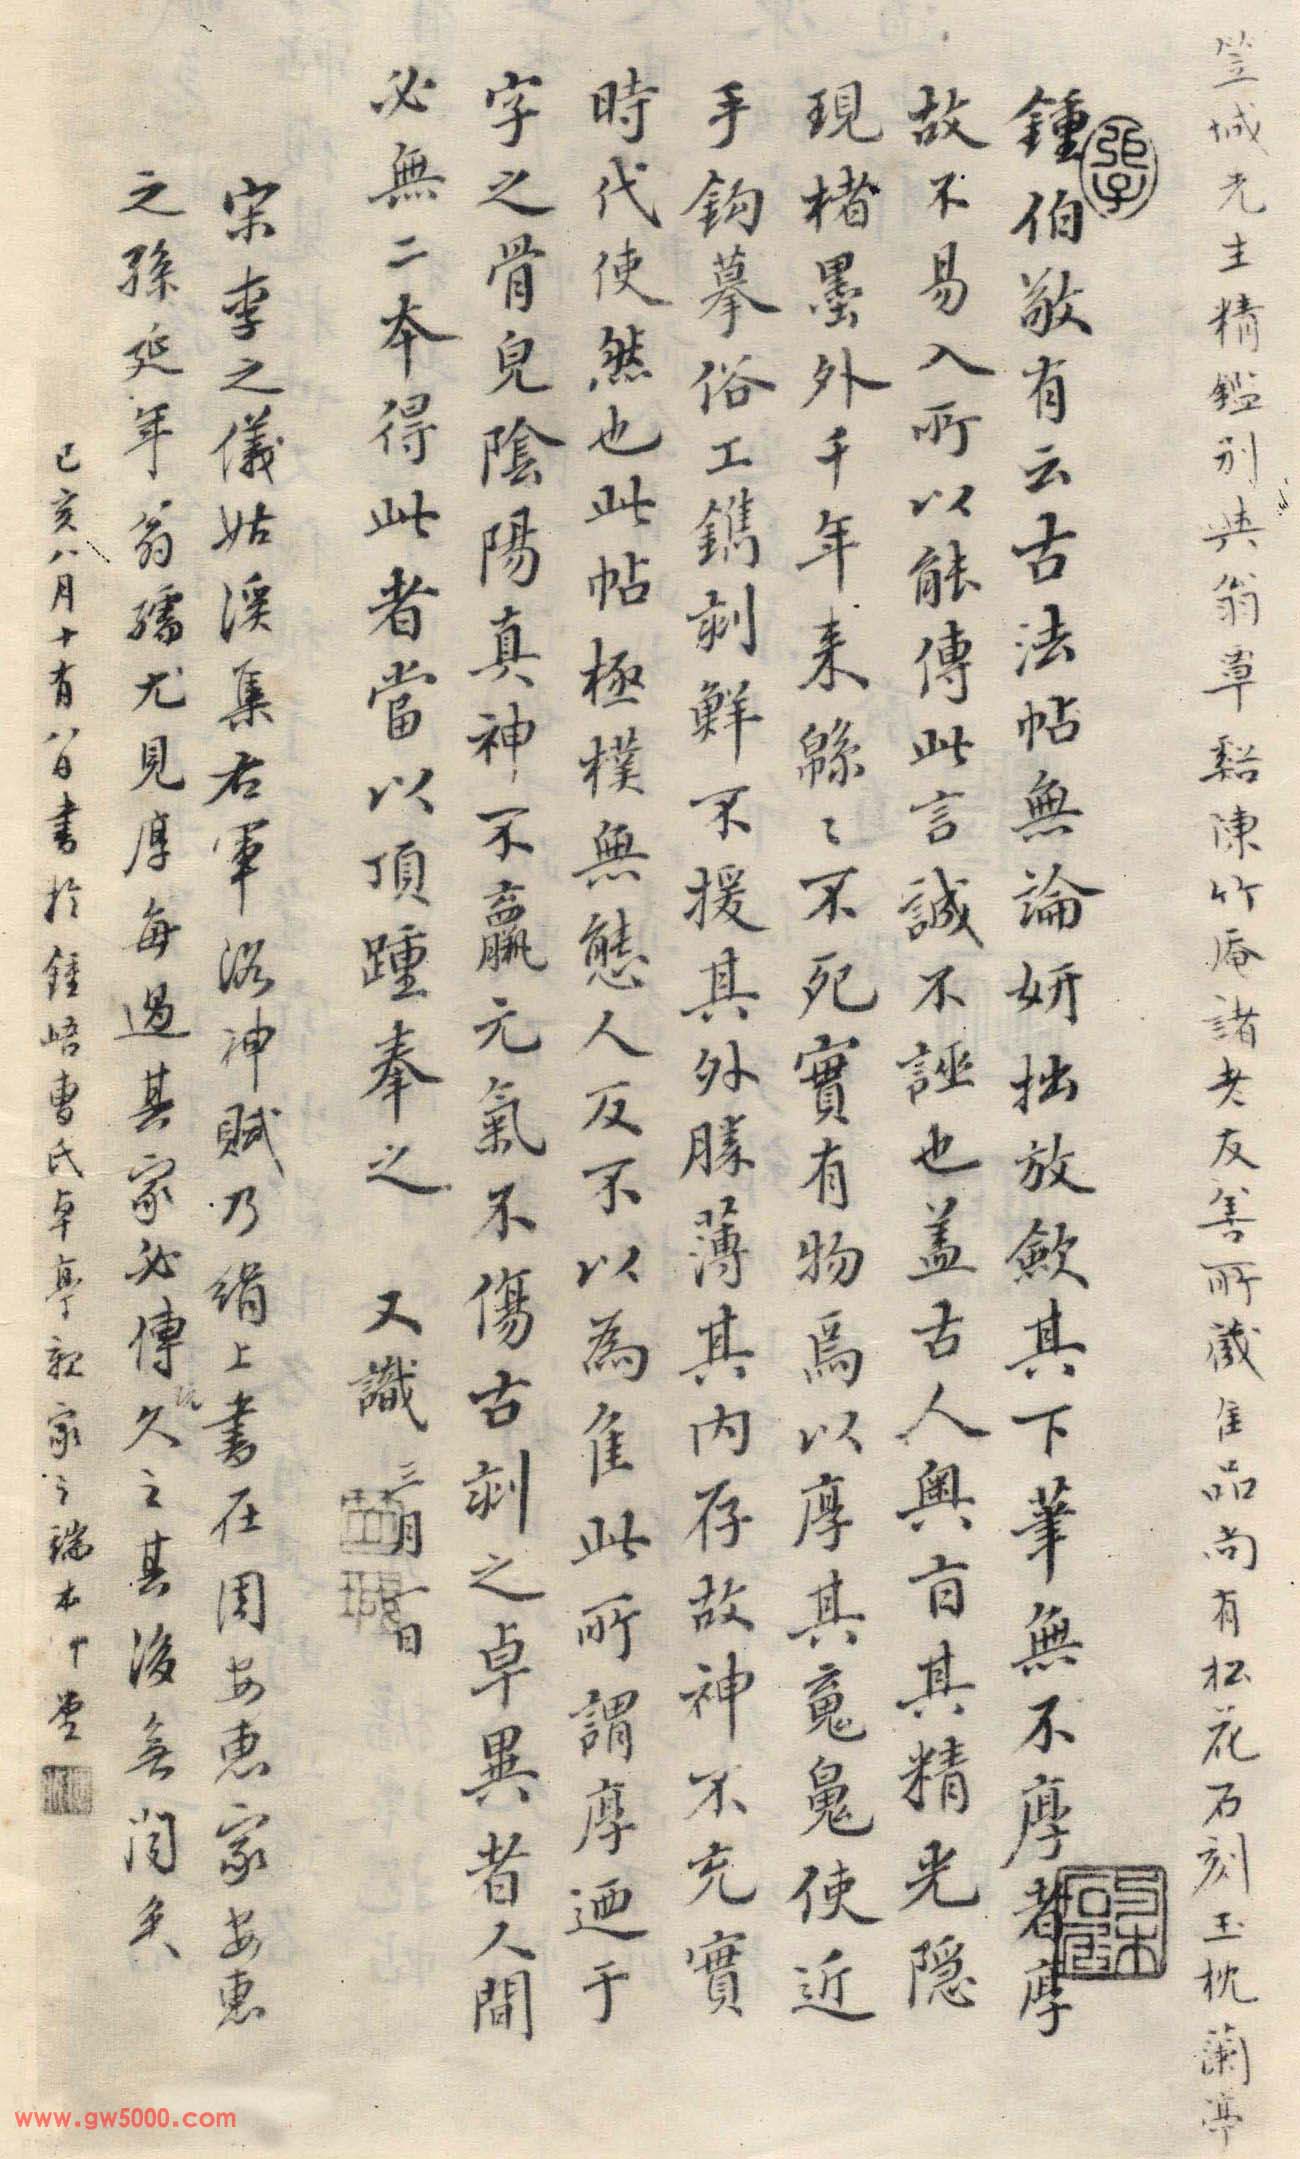 笠城先生精鑑別與翁覃谿陳竹庵諸老友善所藏隹品尚有松花石刻玉枕蘭亭
鍾伯敬有云古法帖無論妍拙放歛其下筆無不厚者厚
故不易入所以能傳此言誠不誣也盖古人奧旨其精光隱
現楮墨外千年来緜〻不死實有物焉以厚其魂鬼使近
手鈎摹俗工鐫刻鮮不援其外勝薄其内存故神不充實
時代使然也此帖極樸無態人反不以為隹此所謂厚迺于
字之骨皃陰陽真神不羸元氣不傷古刻之卓異者人間
必無二本得此者當以頂踵奉之 又識 三月一日
宋李之儀姑溪集右軍洛神賦乃絹上書在周安惠家安惠
之孫延年翁孺尤見厚每過其家必傳久之其後無聞矣
已亥八月十有八日書於鍾峿曹氏卓亭親家之瑞木十堂
www.gw5000.com